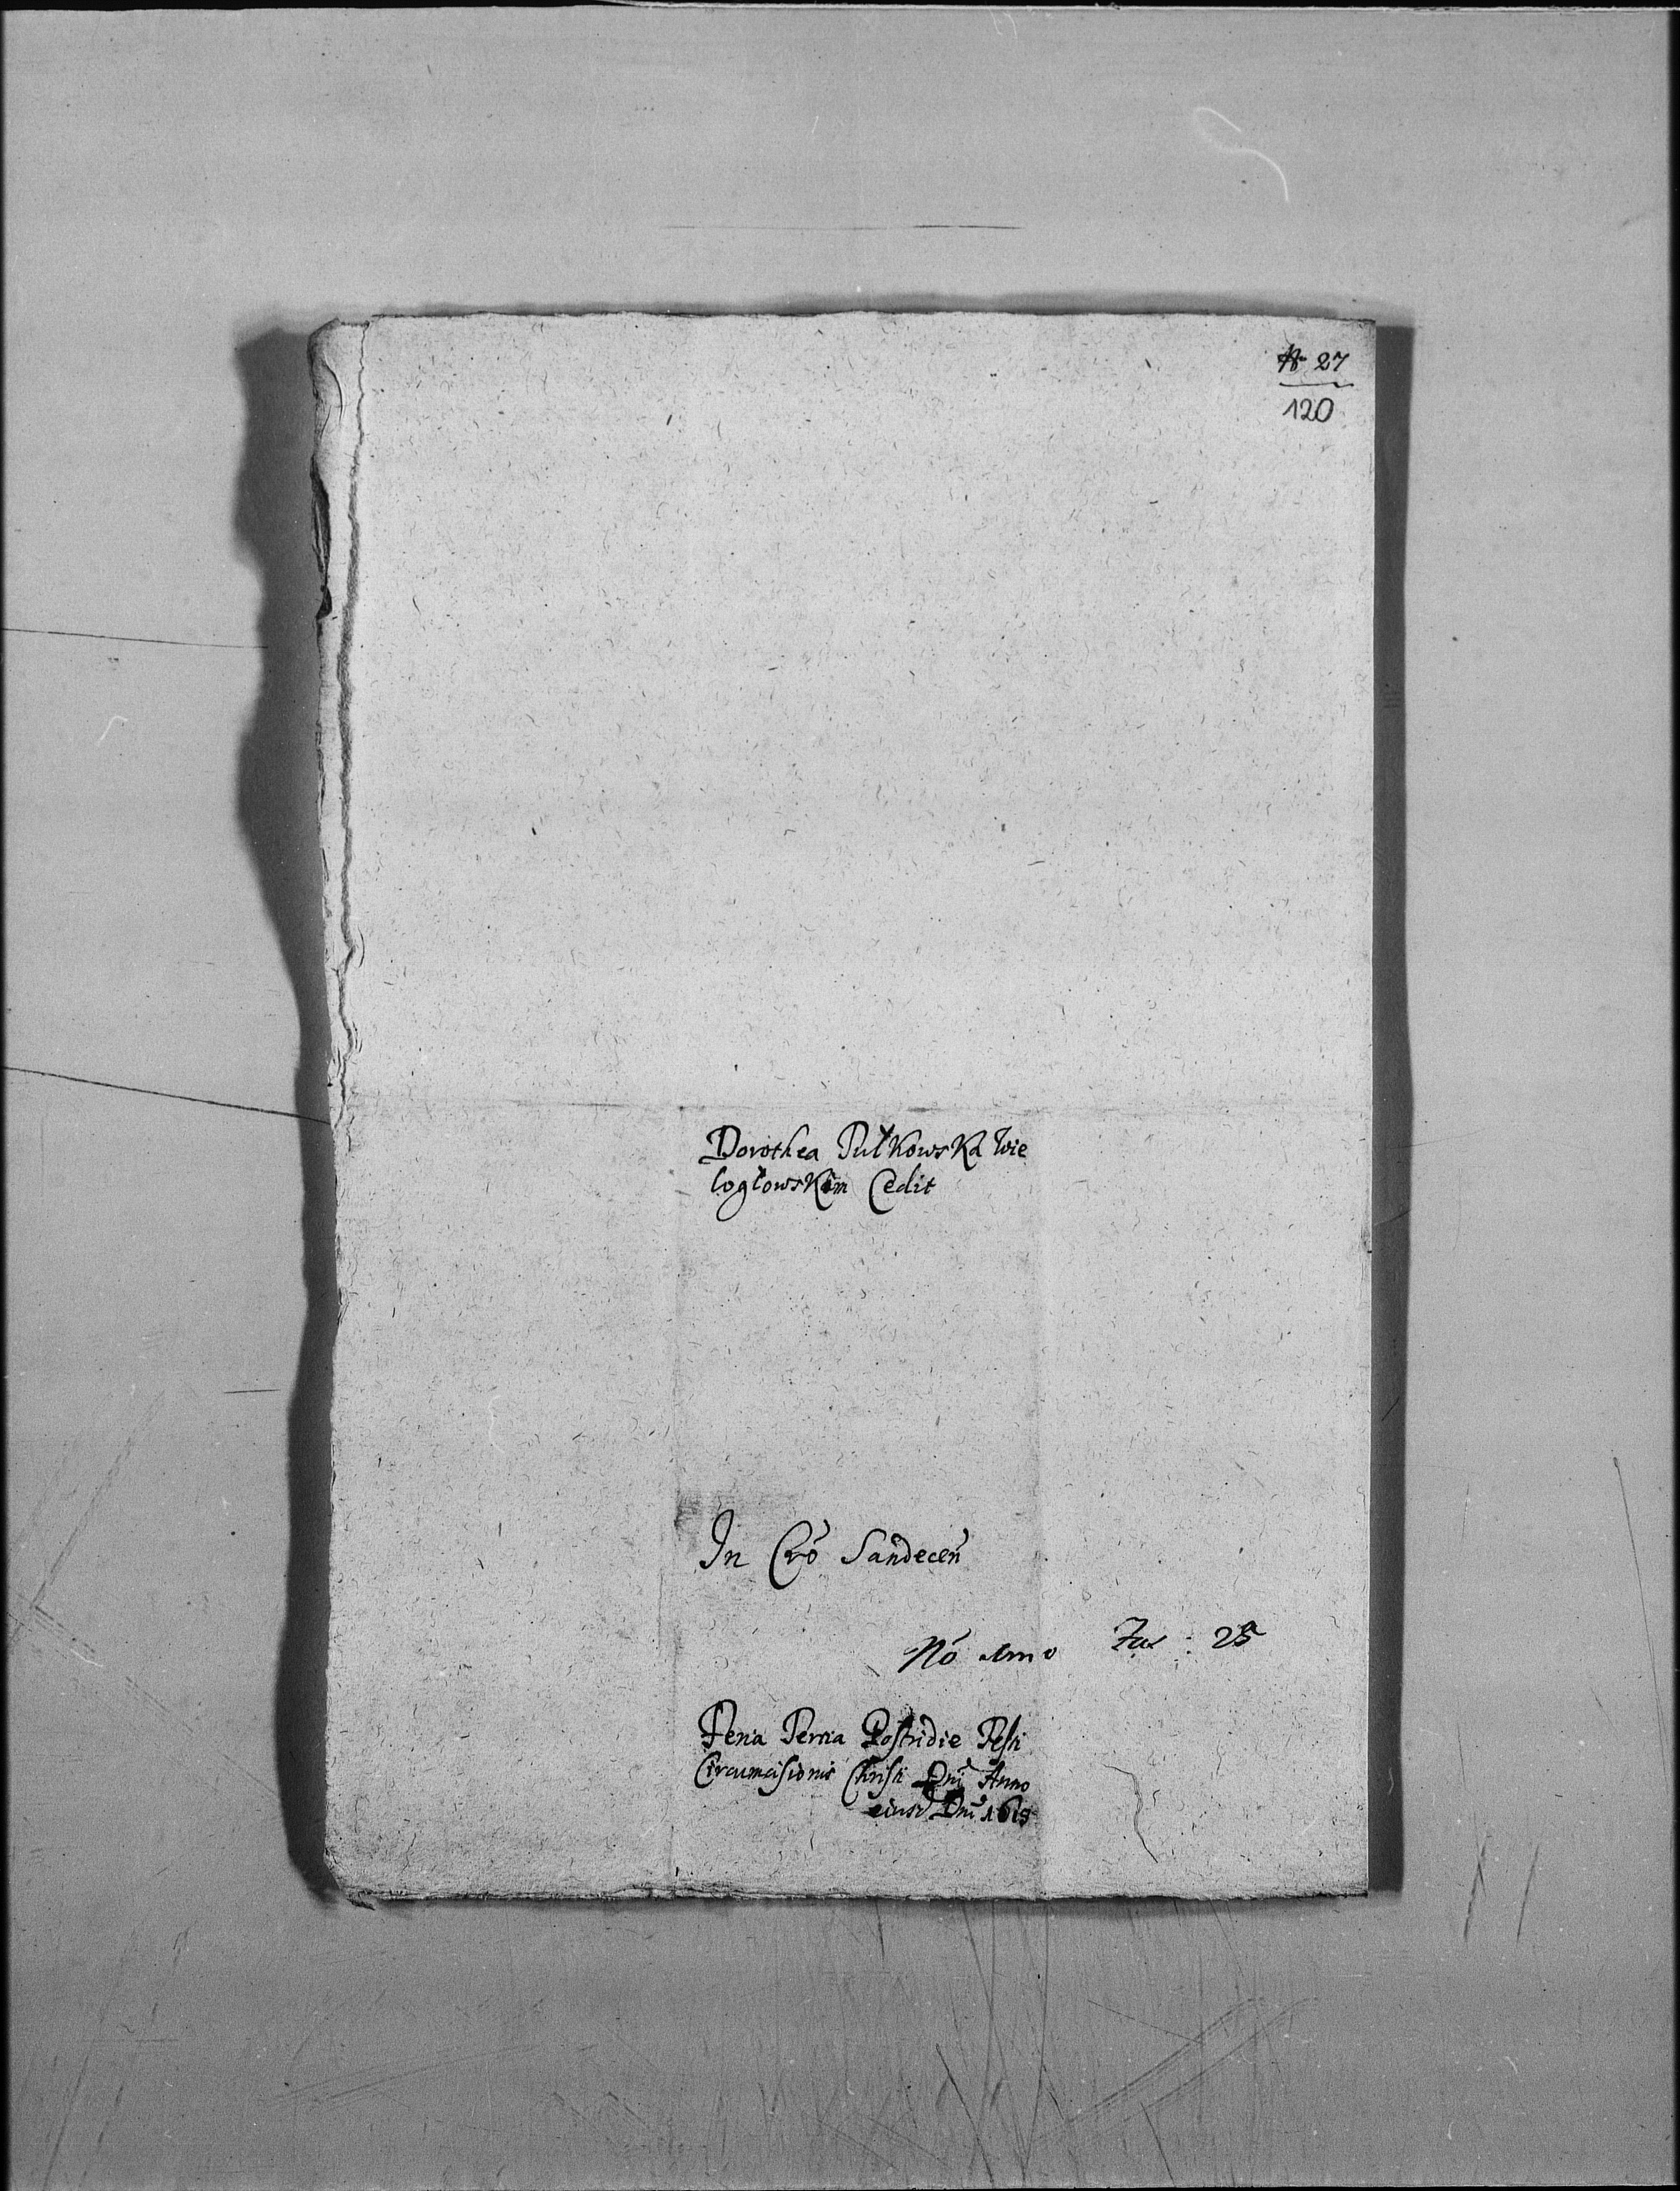 № 27
120
Dorothea Pułkowska Wie
logłowskim Cedit
In Cro Sandecen
No Imo Fas: 25
Feria Tertia Postridie Festi
Circumcisionis Christi Dni Anno
eiusd Dni 1618